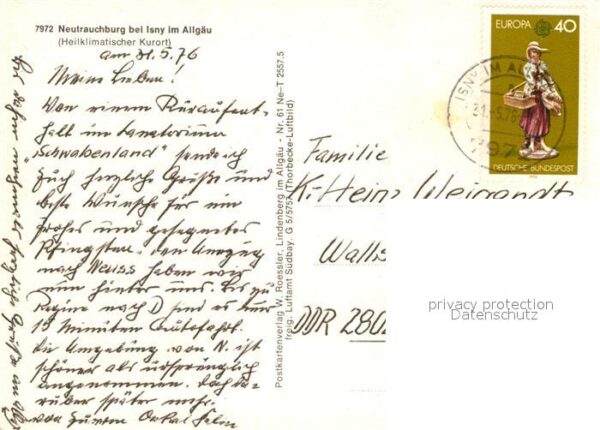 7972 Neutrauchburg bei Isny im Allgäu
(Heilklimatischer Kurort)
am 31.5.76
Meine Lieben!
Von einem Kuraufent-
halt im Sanatorium
"Schwabenland" sende ich
Euch herzliche Grüße und
beste Wünsche für ein
frohes und gesegnetes
Pfingsten. den Umzug
nach Neuss haben wir
nun hinter uns. Bis zu
Regine nach D sind es nur
15 Minuten Autofahrt.
die Umgebung von N. ist
schöner als ursprünglich
angenommen. doch da-
rüber später mehr.
von Eurem Onkel
herzliche Grüße an
Postkartenverlag W. Roessler, Lindenberg im Allgäu - Nr. 61 Ne-T 2557.5
freig. Luftamt Südbay. G 5/5757 (Thorbecke-Luftbild)
EUROPA 40
DEUTSCHE BUNDESPOST
ISNY IM AL
31.-5.76
797
Familie
K-Heinz Weigandt
Walls
DDR 2802
privacy protection
Datenschutz